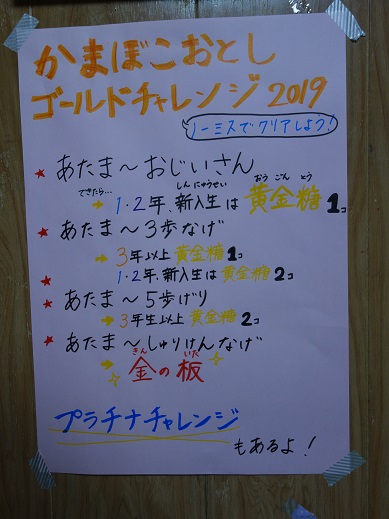 かまぼこおとし
ゴールドチャレンジ 2019
ノーミスでクリアしよう!
★ あたま〜おじいさん
できたら… しんにゅうせい おう ごん とう
→ 1・2年、新入生は 黄金糖 1コ
★ あたま〜3歩なげ
→ 3年以上 黄金糖 1コ
★ 1・2年、新入生は 黄金糖 2コ
★ あたま〜5歩げり
→ 3年生以上 黄金糖 2コ
★ あたま〜しゅりけんなげ
きん いた
→ 金の板
プラチナチャレンジ
もあるよ!